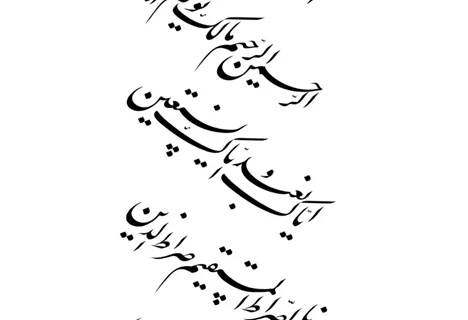 الرّحمن الرّحیم مالک
ایّاک نعبد و ایّاک نستعین
الصّراط المستقیم صراط الذین